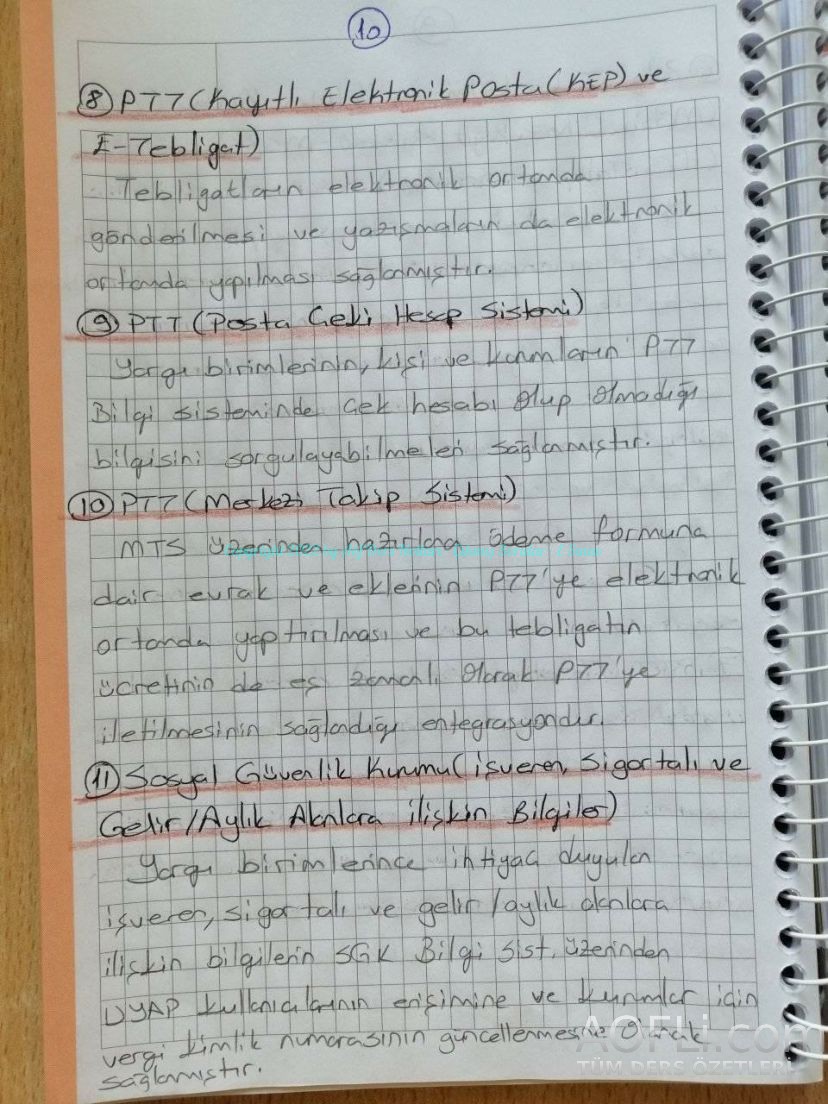 10
8 PTT (Kayıtlı Elektronik Posta (KEP) ve
E-Tebligat)
Tebligatların elektronik ortamda
gönderilmesi ve yazışmaların da elektronik
ortamda yapılması sağlanmıştır.
9 PTT (Posta Çeki Hesap Sistemi)
Yargı birimlerinin, kişi ve kurumların PTT
Bilgi sisteminde çek hesabı olup olmadığı
bilgisini sorgulayabilmeleri sağlanmıştır.
10 PTT (Merkezi Takip Sistemi)
MTS üzerinden hazırlana ödeme formuna
dair evrak ve eklerinin PTT'ye elektronik
ortamda yaptırılması ve bu tebligatın
ücretinin de eş zamanlı olarak PTT'ye
iletilmesinin sağlandığı entegrasyondur.
11 Sosyal Güvenlik Kurumu (işveren, Sigortalı ve
Gelir/Aylık Alanlara ilişkin Bilgiler)
Yargı birimlerince ihtiyaç duyulan
işveren, sigortalı ve gelir/aylık alanlara
ilişkin bilgilerin SGK Bilgi Sist. üzerinden
UYAP kullanıcılarının erişimine ve kurumlar için
vergi kimlik numarasının güncellenmesine
sağlamıştır.
AOFLi.com
TÜM DERS ÖZETLERİ